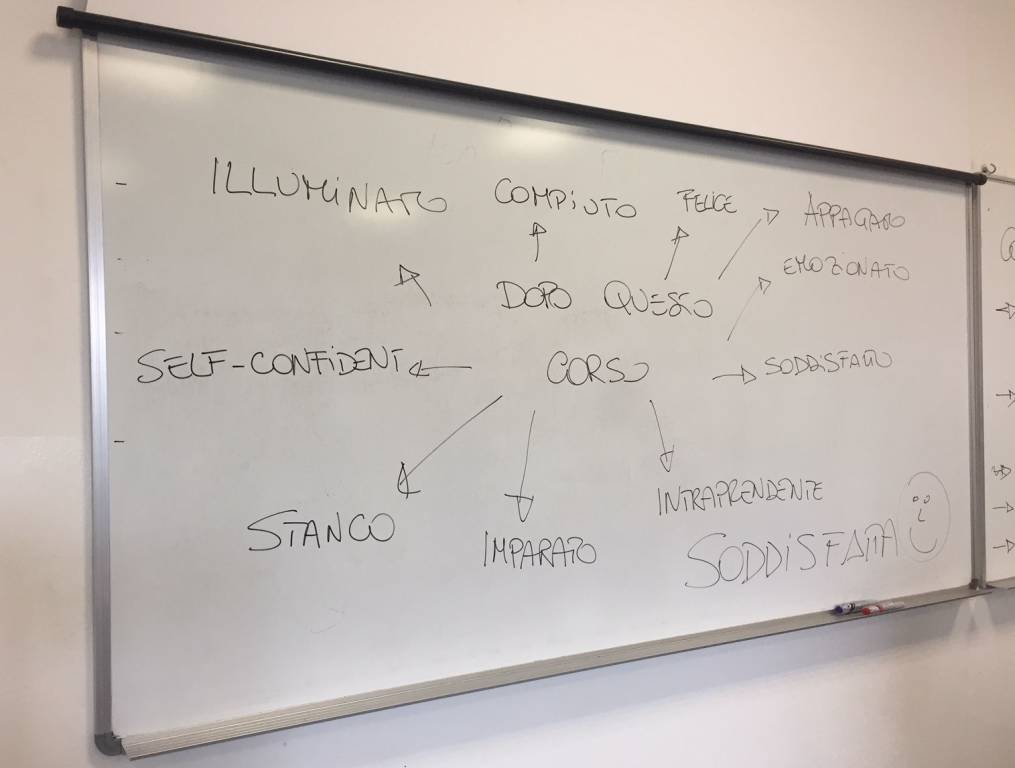 ILLUMINATO COMPIUTO FELICE APPAGATO
EMOZIONATO
DOPO QUESTO
SELF-CONFIDENT CORSO SODDISFATTO
STANCO IMPARATO INTRAPRENDENTE
SODDISFATTA